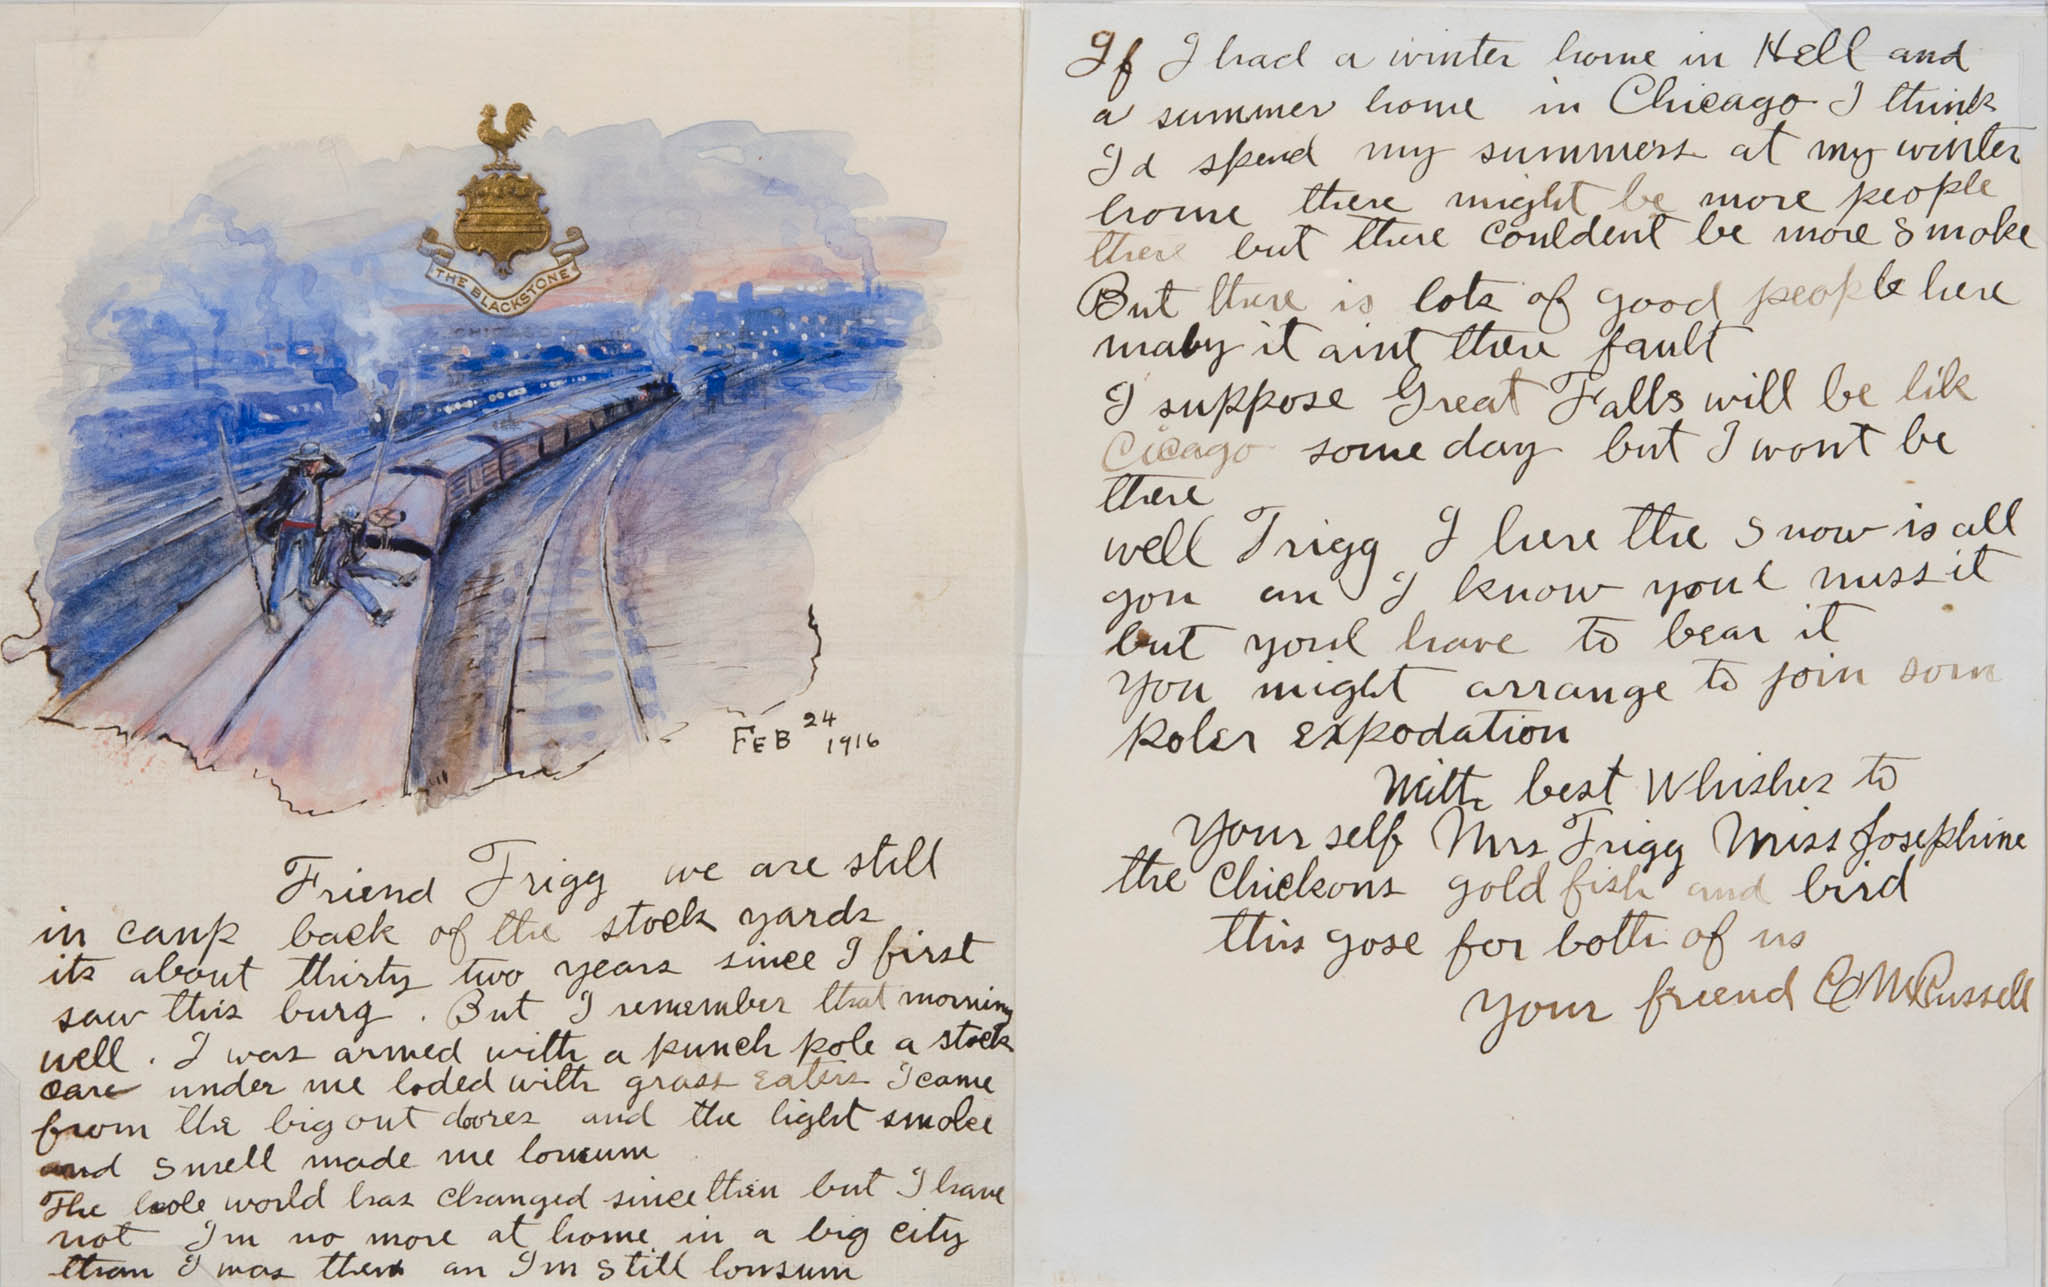 THE BLACKSTONE
FEB 24 1916
Friend Trigg we are still
in camp back of the stock yards
its about thirty two years since I first
saw this burg. But I remember that morning
well. I was armed with a punch pole a stock
care under me loded with grass eaters I came
from the big out doores and the light smoke
and smell made me lonsum
The hole world has changed since then but I have
not Im no more at home in a big city
than I was then an Im still lonsum
If I had a winter home in Hell and
a summer home in Chicago I think
Id spend my summers at my winter
home there might be more people
there but there couldent be more smoke
But there is lots of good people here
maby it aint there fault
I suppose Great Falls will be lik
Cicago some day but I wont be
there
well Trigg I here the snow is all
gon an I know youl miss it
but youl have to bear it
You might arrange to join som
poler expodation
With best Whishes to
Your self Mrs Trigg Miss Josephine
the Chickons gold fish and bird
this gose for both of us
Your friend CM Russell